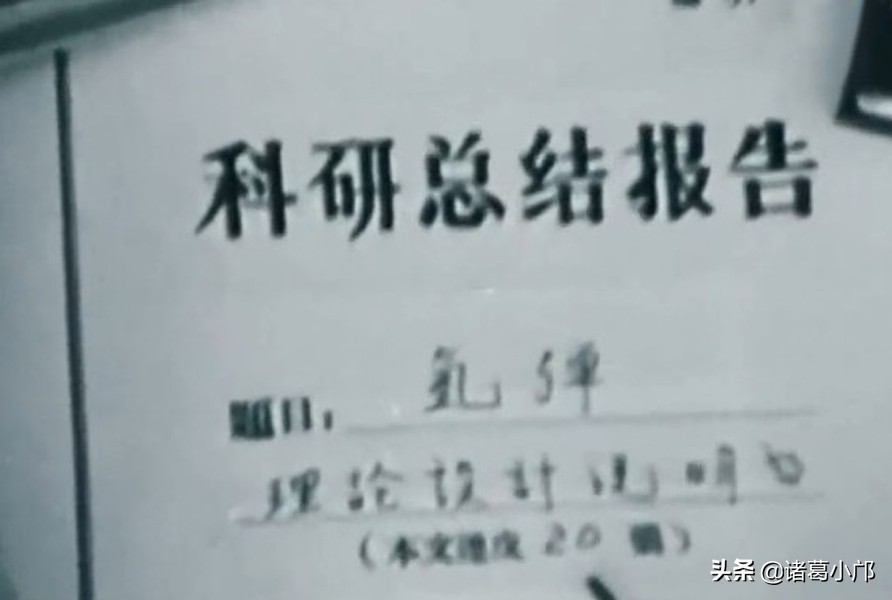 科研总结报告
题目: 氢弹
理論設計说明书
(本文 20 )
头条 @诸葛小邝